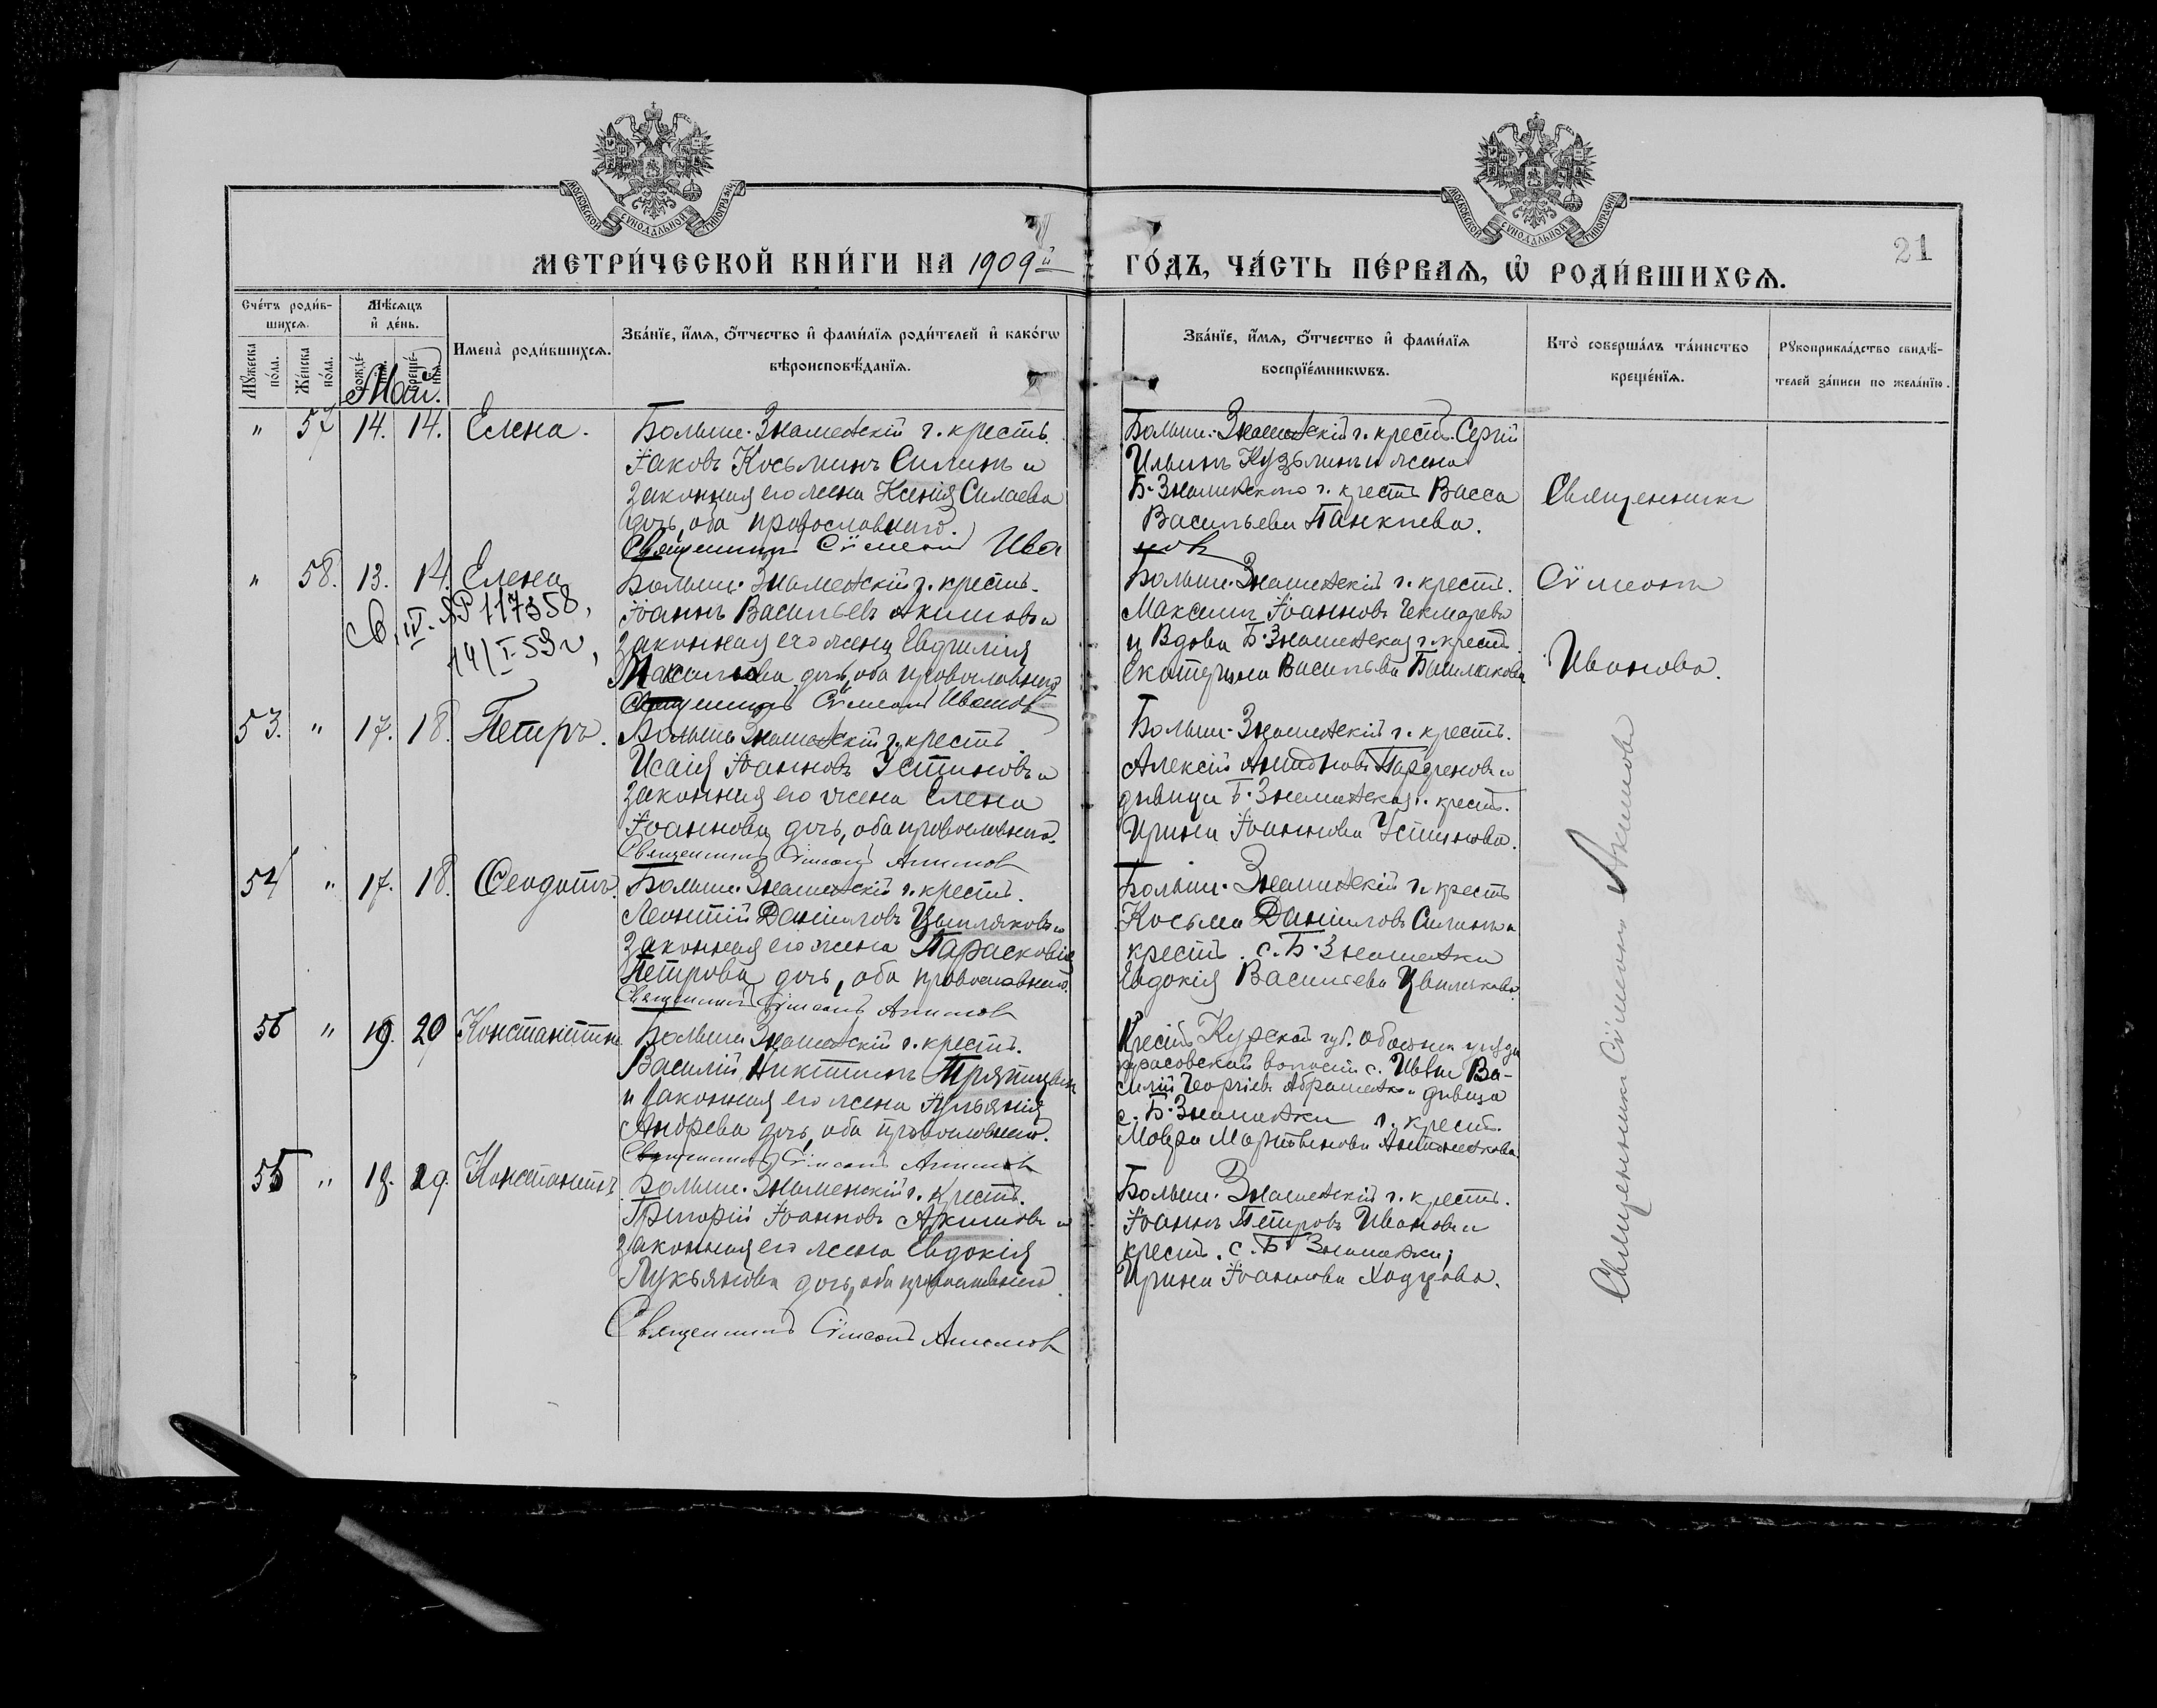 МОСКОВСКОЙ СѴНОДАЛЬНОЙ ТИПОГРАФІИ
МОСКОВСКОЙ СѴНОДАЛЬНОЙ ТИПОГРАФІИ
21
МЕТРИ́ЧЕСКОЙ КНИ́ГИ НА 1909й
ГО́ДЪ, ЧА́СТЬ ПЕ́РВАѦ, Ѡ҆ РОДИ́ВШИХСѦ.
Сче́тъ роди́в-
шихсѧ.
Мꙋ́жеска по́ла.
Же́нска по́ла.
Мѣ́сѧцъ
и҆ де́нь.
рожде́-
нїѧ.
креще́-
нїѧ.
Имена̀ роди́вшихсѧ.
Зва́нїе, и҆́мѧ, ѻ҆́тчество и҆ фами́лїѧ роди́телей и҆ како́гѡ
вѣроисповѣ́данїѧ.
Зва́нїе, и҆́мѧ, ѻ҆́тчество и҆ фами́лїѧ
воспрїе́мникѡвъ.
Кто̀ соверша́лъ та́инство
креще́нїѧ.
Рꙋкоприкла́дство свидѣ́-
телей за́писи по жела́нїю.
Май.
" 57 14. 14. Елена.
Больше-Знаменскій г. крестъ.
Іаковъ Косьминъ Силинъ и
законная его жена Ксенія Силаева
дочь, оба православнаго.
Священникъ Сѵмеонъ Ива
Больше-Знаменскій г. крестъ. Сергій
Ильинъ Кузьминъ и жена
Б-Знаменского г. крестъ Васса
Васильева
нов
Священникъ
Сѵмеонъ
Ивановъ.
" 58. 13. 14. Елена
Больше-Знаменскій г. крестъ.
Іоаннъ Васильевъ Акимовъ и
законная его жена Евфимія
дочь, оба православнаго
Священникъ Сѵмеонъ Иванов
117358,
14/I-53г,
Больше-Знаменскій г. крестъ.
Максимъ Іоанновъ Чекмаревъ
и Вдова Б-Знаменская г. крест.
Екатерина Васильева Башмакова
53. " 17. 18. Петръ.
Больше Знаменскій г. крестъ.
Исаія Іоанновъ Устиновъ и
законная его жена Елена
Іоаннова дочь, оба православнаго.
Священникъ Сѵмеонъ Акимов
Больше-Знаменскій г. крестъ.
Алексій Парфеновъ и
дѣвица Б-Знаменская г. крест.
Ирина Іоаннова Устинова.
54 " 17. 18. Ѳеодотъ.
Больше-Знаменскій г. крестъ.
Леонтій Даніиловъ Цвиляковъ и
законная его жена Парасковія
Петрова дочь, оба православнаго.
Священникъ Сѵмеонъ Акимов
Больше-Знаменскій г. крестъ
Косьма Даніиловъ Силинъ и
крестъ. с. Б-Знаменки
Евдокія Васильева Цвилякова.
55 " 19. 20 Константинъ
Больше Знаменскій г. крестъ.
Василій Никитинъ
и законная его жена Ѵльянія
Андреева дочь, оба православнаго.
Священникъ Сѵмеонъ Акимов
Крестъ. Курской губ. Обоянск уѣзда
волости с. Ва-
силій Георгіевъ и дѣвица
с. Б-Знаменки г. крест.
Мавра Мартынова
56 " 19. 20. Константинъ
Больше-Знаменскій г. Крестъ.
Григорій Іоанновъ Акимовъ и
законная его жена Евдокія
Лукьянова дочь, оба православнаго.
Священникъ Сѵмеонъ Акимов
Больше-Знаменскій г. крестъ.
Іоаннъ Петровъ Ивановъ и
крестъ. с. Б-Знаменки;
Ирина Іоаннова
Священникъ Сѵмеонъ Акимовъ